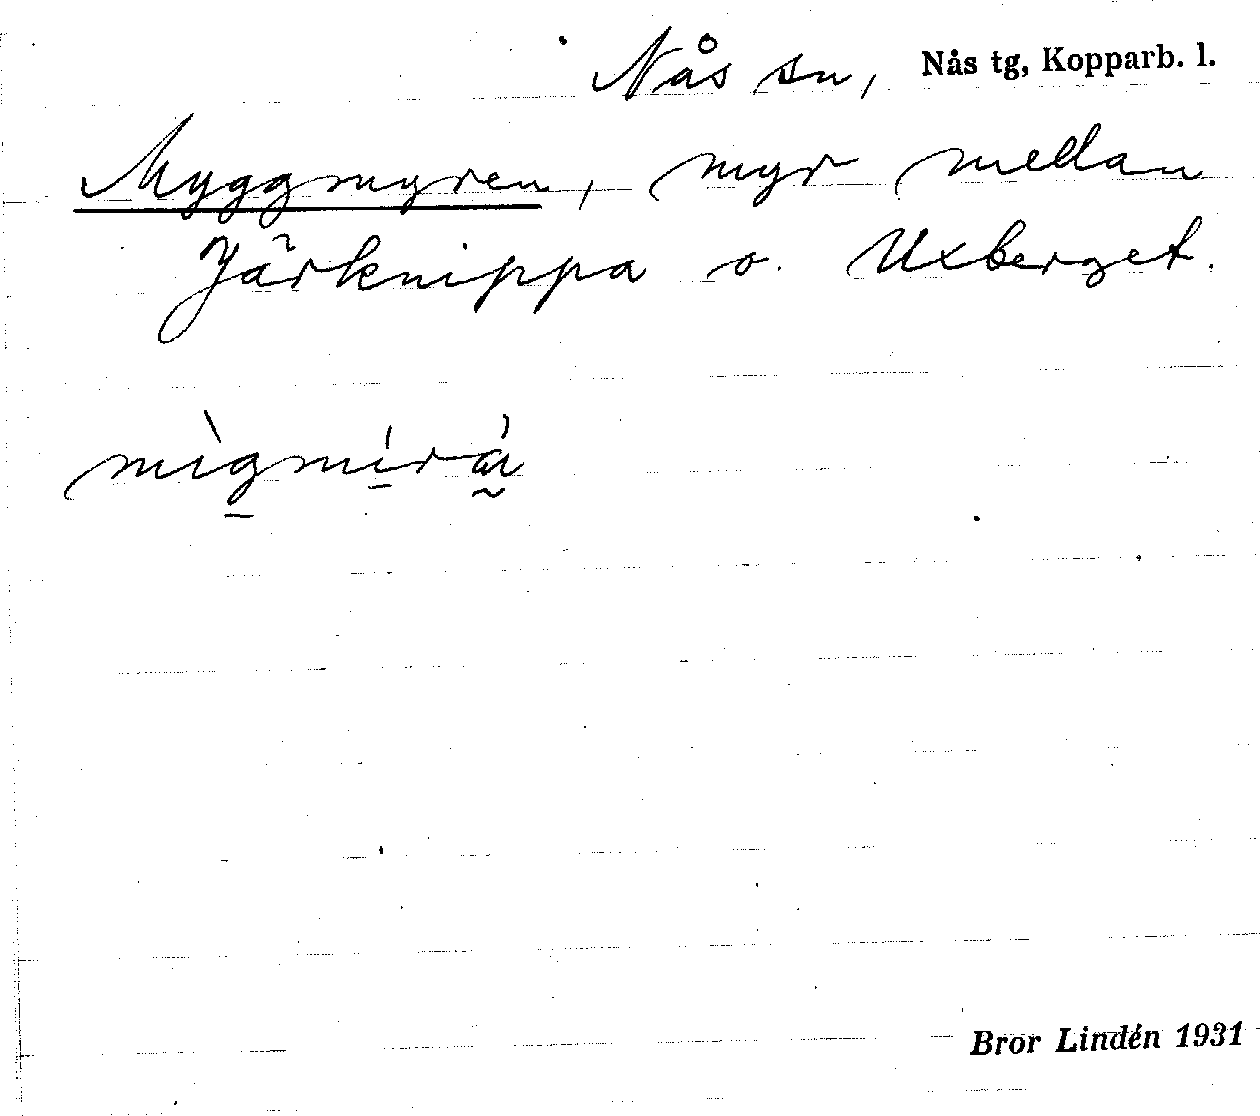 Nås sn, Nås tg, Kopparb. l.
Myggmyren, myr mellan
Järknippa o. Uxberget.
mìgmírá̰
Bror Lindén 1931